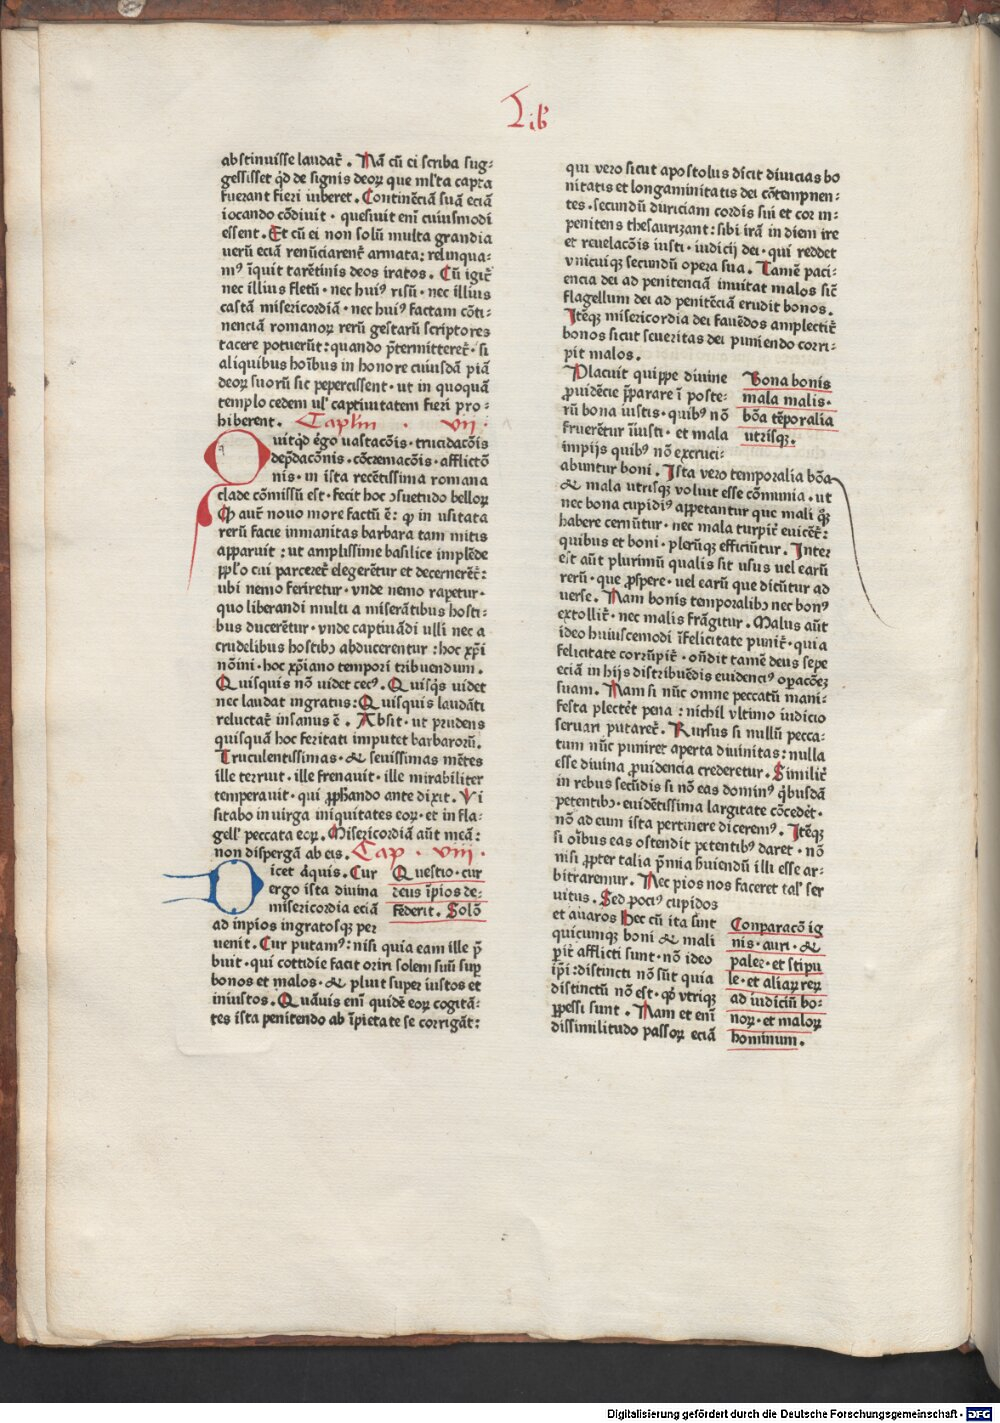 Lib
abstinuisse laudat᷑ . Nā cū ei scriba sug⸗
gessisset q̄d de signis deoꝝ que ml̓ta capta
fuerant fieri iuberet . Continēciā suā eciā
iocando cōdiuit · quesiuit em̄ cuiusmodi
essent . Et cū ei non solū multa grandia
uerū eciā renūciarent᷑ armata: relinqua⸗
m⁹ īquit tarētinis deos iratos . Cū igit᷑
nec illius fletū · nec hui⁹ risū · nec illius
castā misericordiā · nec hui⁹ factam cōti⸗
nenciā romanoꝝ rerū gestarū scriptores
tacere potuerūt: quando p̄termitteret᷑ · si
aliquibus hoībus in honore cuiusdā piā
deoꝝ suorū sic pepercissent · ut in quoquā
templo cedem ul̓ captiuitatem fieri pro⸗
hiberent . Caplm · vii ·
Quitqd ergo uastacōis · trucidacōis
depdacōnis · cōcremacōis · afflictō
nis · in ista recētissima romana
clade cōmissū est · fecit hoc ↄsuetudo belloꝝ
Qͻ aut᷑ nouo more factū ē: qͻ in usitata
rerū facie inmanitas barbara tam mitis
apparuit : ut amplissime basilice implēde
pplo cui parceret᷑ elegerētur et decernerēt᷑:
ubi nemo feriretur · vnde nemo rapetur ·
quo liberandi multi a miserātibus hosti⸗
bus ducerētur · vnde captiuādi ulli nec a
crudelibus hostibꝫ abducerentur : hoc xp̄i
nōini · hoc xp̄iano tempori tribuendum .
Quisquis nō uidet cec⁹ . Quisq̄s uidet
nec laudat ingratus: Quisquis laudāti
reluctat᷑ insanus ē . Absit · ut prudens
quisquā hoc feritati imputet barbarorū .
Truculentissimas · ⁊ seuissimas mētes
ille terruit · ille frenauit · ille mirabiliter
temperauit · qui ꝓphando ante dixit . Vi
sitabo in virga iniquitates eoꝝ · et in fla⸗
gell̓ peccata eoꝝ . Misericordiā aūt meā:
non dispergā ab eis . Cap · viii ·
Dicet aq̇uis . Cur
ergo ista diuina
misericordia eciā
ad inpios ingratosqꝫ per
Questio · cur
deus īpios de⸗
federit . Solō
uenit . Cur putam⁹: nisi quia eam ille p̄
buit · qui cottidie facit oriri solem suū sup
bonos et malos · ⁊ pluit super iustos et
iniustos . Quāuis em̄ quidē eoꝝ cogitā⸗
tes ista penitendo ab īpietate se corrigāt:
qui vero sicut apostolus dicit diuicias bo
nitatis et longaminitatis dei cōtempnen⸗
tes · secundū duriciam cordis sui et cor in⸗
penitens thesaurizant: sibi irā in diem ire
et reuelacōis iusti · iudicij dei · qui reddet
vnicuiqꝫ secundū opera sua . Tamē paci⸗
encia dei ad penitenciā inuitat malos sic᷑
flagellum dei ad penitēciā erudit bonos .
Itēqꝫ misericordia dei fauēdos amplectit᷑
bonos sicut seueritas dei puniendo corri⸗
pit malos .
Placuit quippe diuine
ꝓuidēcie p̄parare ī poste⸗
rū bona iustis · quibꝰ nō
fruerētur īiusti · et mala
impijs quibꝰ nō excruci⸗
Bona bonis
mala malis ·
bōa tēporalia
utrisqꝫ .
abuntur boni . Ista vero temporalia bōa
⁊ mala utrisqꝫ voluit esse cōmunia · ut
nec bona cupidi⁹ appetantur que mali q̊qꝫ
habere cernūtur · nec mala turpit᷑ euicēt᷑:
quibus et boni · plerūqꝫ efficiūtur . Inter
est aūt plurimū qualis sit usus uel earū
rerū · que ꝓspere · uel earū que dicūtur ad
uerse . Nam bonis temporalibꝫ nec bon⁹
extollit᷑ · nec malis frāgitur . Malus aūt
ideo huiuscemodi īfelicitate punit᷑ · quia
felicitate corrūpit᷑ · oñdit tamē deus sepe
eciā in hijs distribuēdis euidenci⁹ oꝑacōeꝫ
suam . Nam si nūc omne peccatū mani⸗
festa plectēt pena : nichil vltimo iudicio
seruari putaret᷑ . Rursus si nullū pecca⸗
tum nūc puniret aperta diuinitas: nulla
esse diuina ꝓuidencia crederetur . Similit᷑
in rebus secūdis si nō eas domin⁹ q̇busdā
petentibꝫ · euidētissima largitate cōcedet ·
nō ad eum ista pertinere dicerem⁹ . Itēqꝫ
si oībus eas ostendit petentibꝰ daret · nō
nisi ꝓpter talia p̄mia ẜuiendū illi esse ar⸗
bitraremur . Nec pios nos faceret tal̓ ser
uitus . Sed poci⁹ cupidos
et auaros Hec cū ita sint
quicumqꝫ boni ⁊ mali
ꝑit᷑ afflicti sunt · nō ideo
ip̄i : distincti nō sūt quia
distinctū nō est · qͻ vtriqꝫ
ꝑpessi sunt . Nam et em̄
dissimilitudo passoꝝ eciā
Conparacō ig
nis · auri · ⁊
palee · et stipu
le · et aliaꝝ reꝝ
ad iudiciū bo⸗
noꝝ · et maloꝝ
hominum .
Digitalisierung gefördert durch die Deutsche Forschungsgemeinschaft · DFG